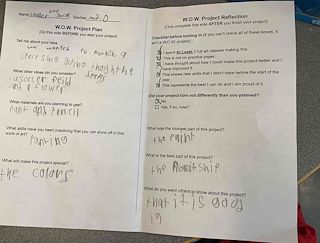 and
Name Jack Teacher
W.O.W. Project Plan
(Do this side BEFORE you start your project)
Tell me about your idea.
we wanted to make a
spaceship going through the
What other ideas did you consider?
a soccer feild
and a flower
What materials are you planning to use?
Paint and Pencil
What skills have you been practicing that you can show off in this
work of art?
Painting
What will make this project special?
the colors
W.O.W. Project Reflection
(Only complete this side AFTER you finish your project)
Checklist before turning in (if you can't check all of these boxes, it
isn't a W.O.W. project)
I spent At Least 2 full art classes making this.
This is not on practice paper.
I have thought about how I could make this project better and I
have improved it.
This shows new skills that I didn't have before the start of the
year.
This represents the best I can do and I am proud of it.
Did your project turn out differently than you planned?
No
Yes, if so, how?
What was the trickiest part of this project?
the Paint
What is the best part of this project?
the
What do you want others to know about this project?
that it is good